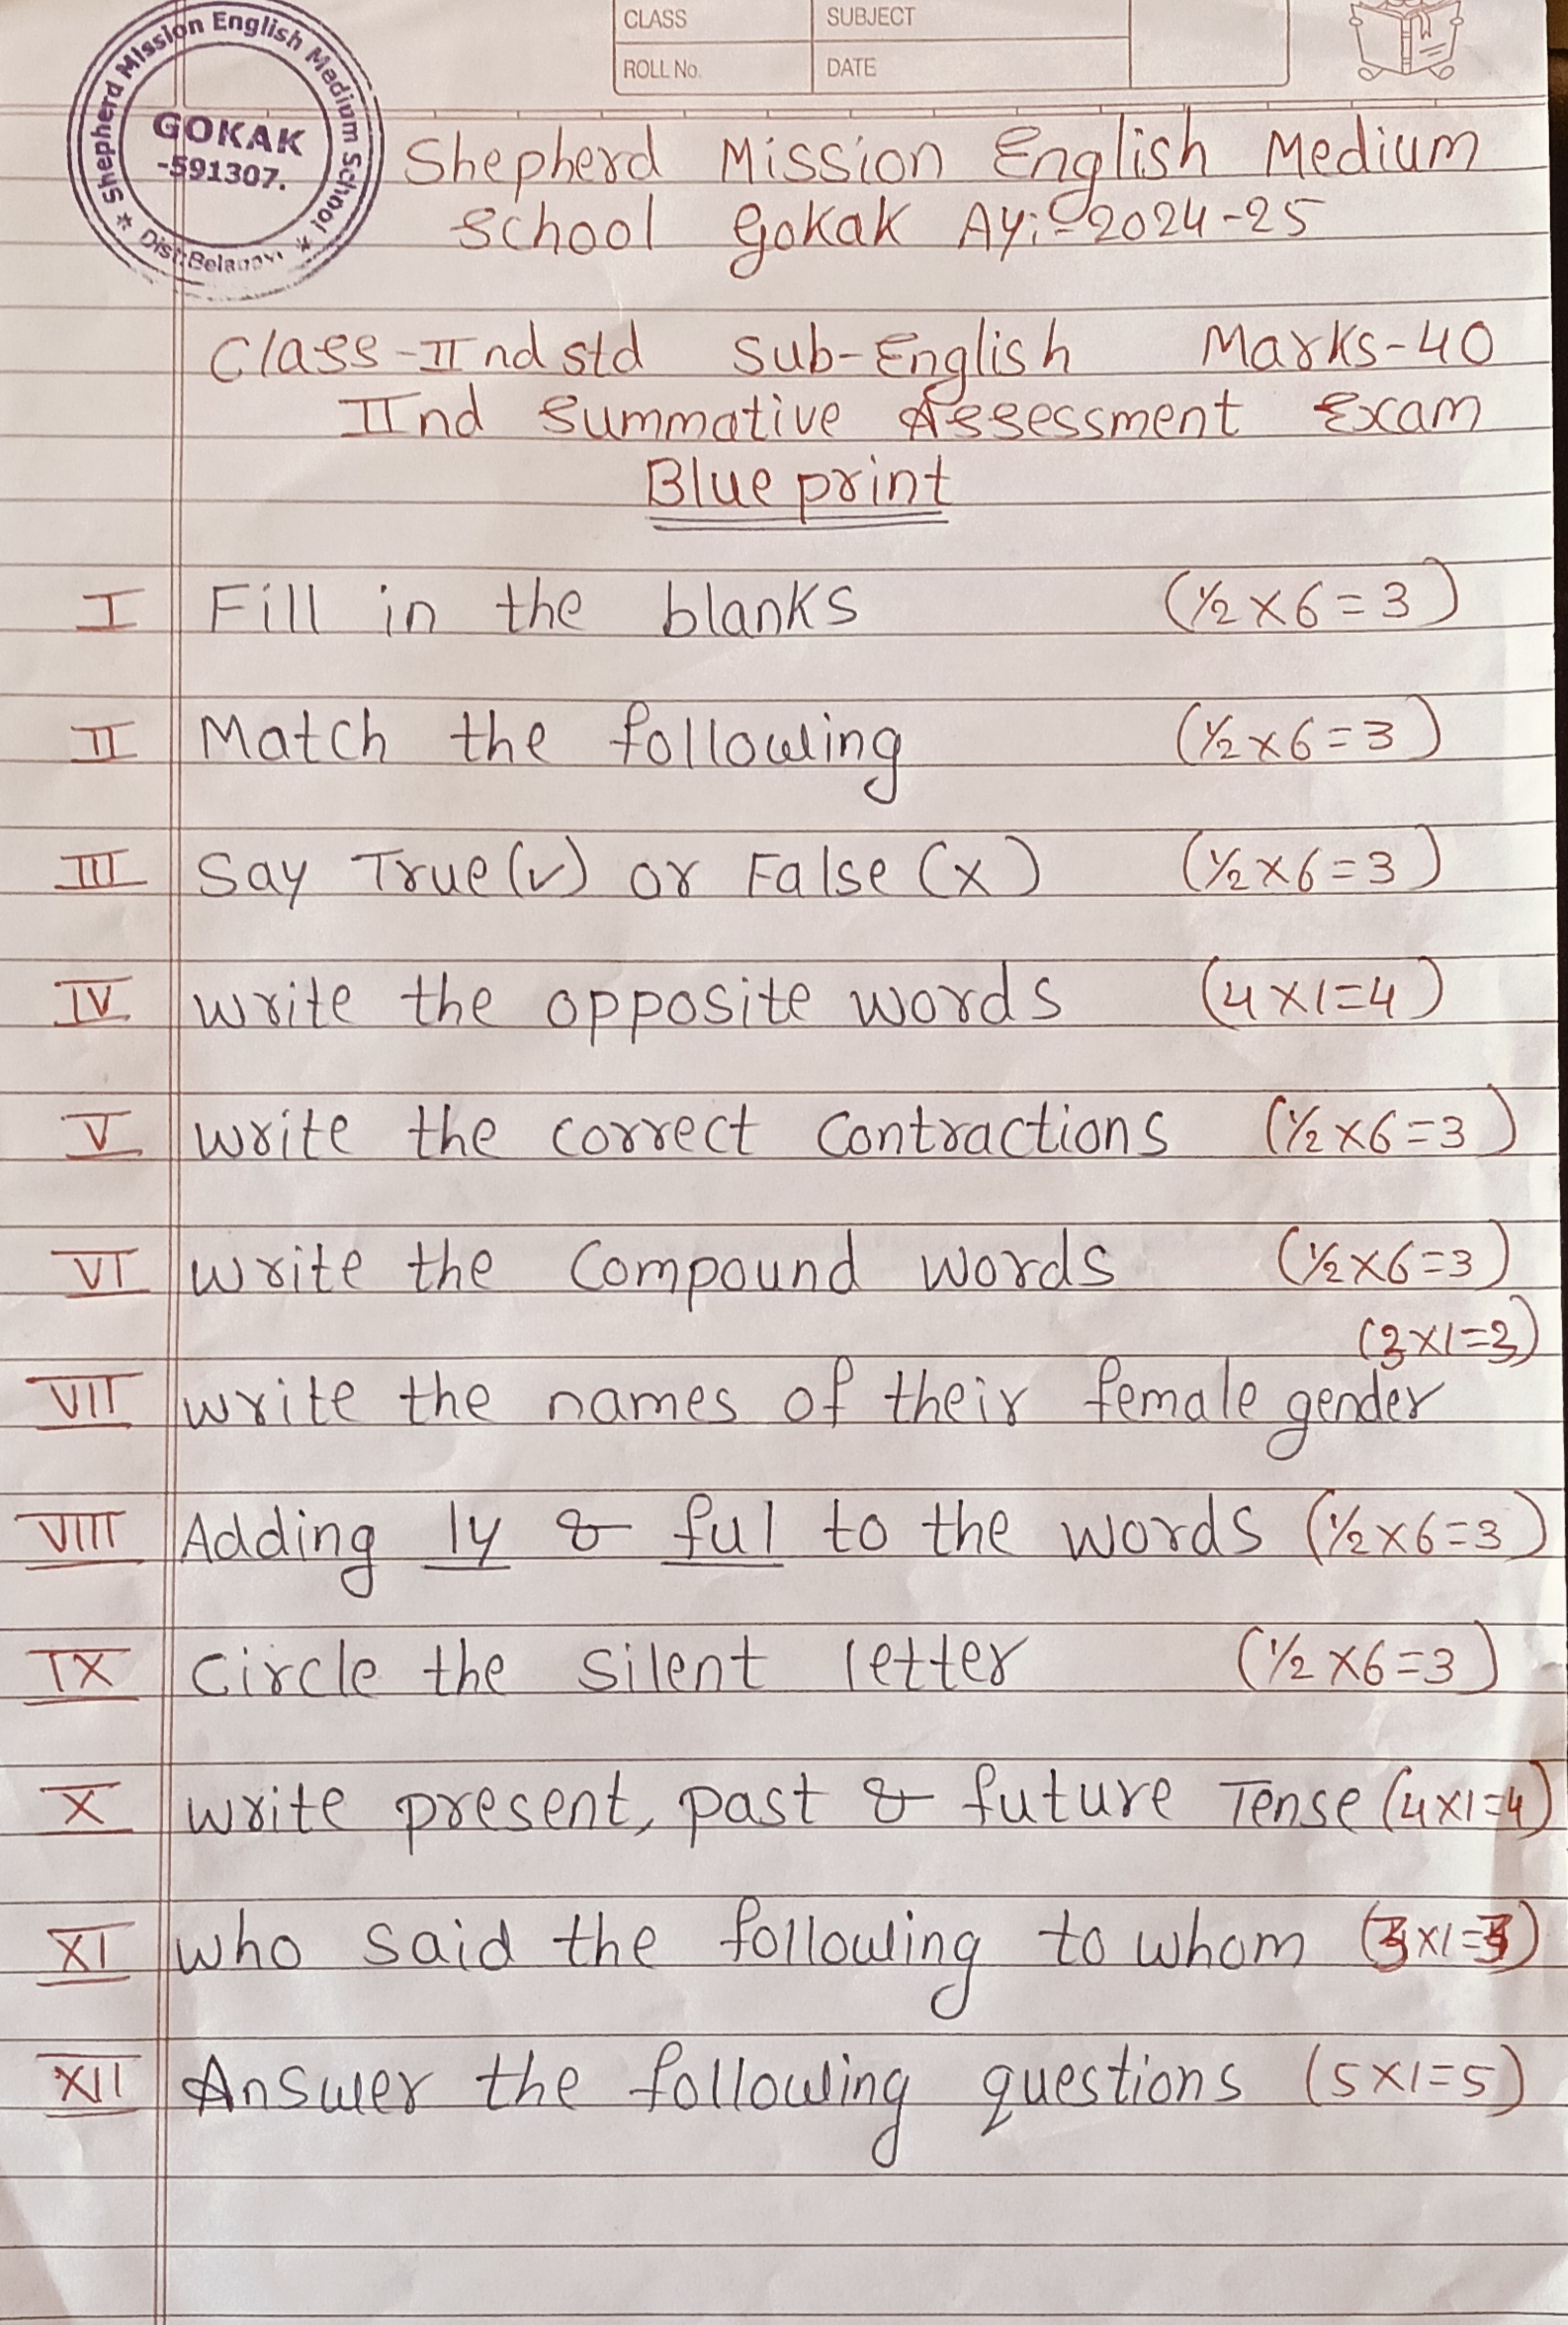 CLASS SUBJECT
ROLL No. DATE
Shepherd Mission English Medium School
GOKAK
-591307.
Shepherd Mission English Medium
School Gokak Ay:-2024-25
Class-IInd std Sub-English Marks-40
IInd Summative Assessment Exam
Blue print
I Fill in the blanks (½×6=3)
II Match the following (½×6=3)
III Say True(✓) or False (×) (½×6=3)
IV write the opposite words (4×1=4)
V write the correct contractions (½×6=3)
VI write the compound words (½×6=3)
(3×1=3)
VII write the names of their female gender
VIII Adding ly & ful to the words (½×6=3)
IX circle the silent letter (½×6=3)
X write present, past & future Tense (4×1=4)
XI who said the following to whom (3×1=3)
XII Answer the following questions (5×1=5)